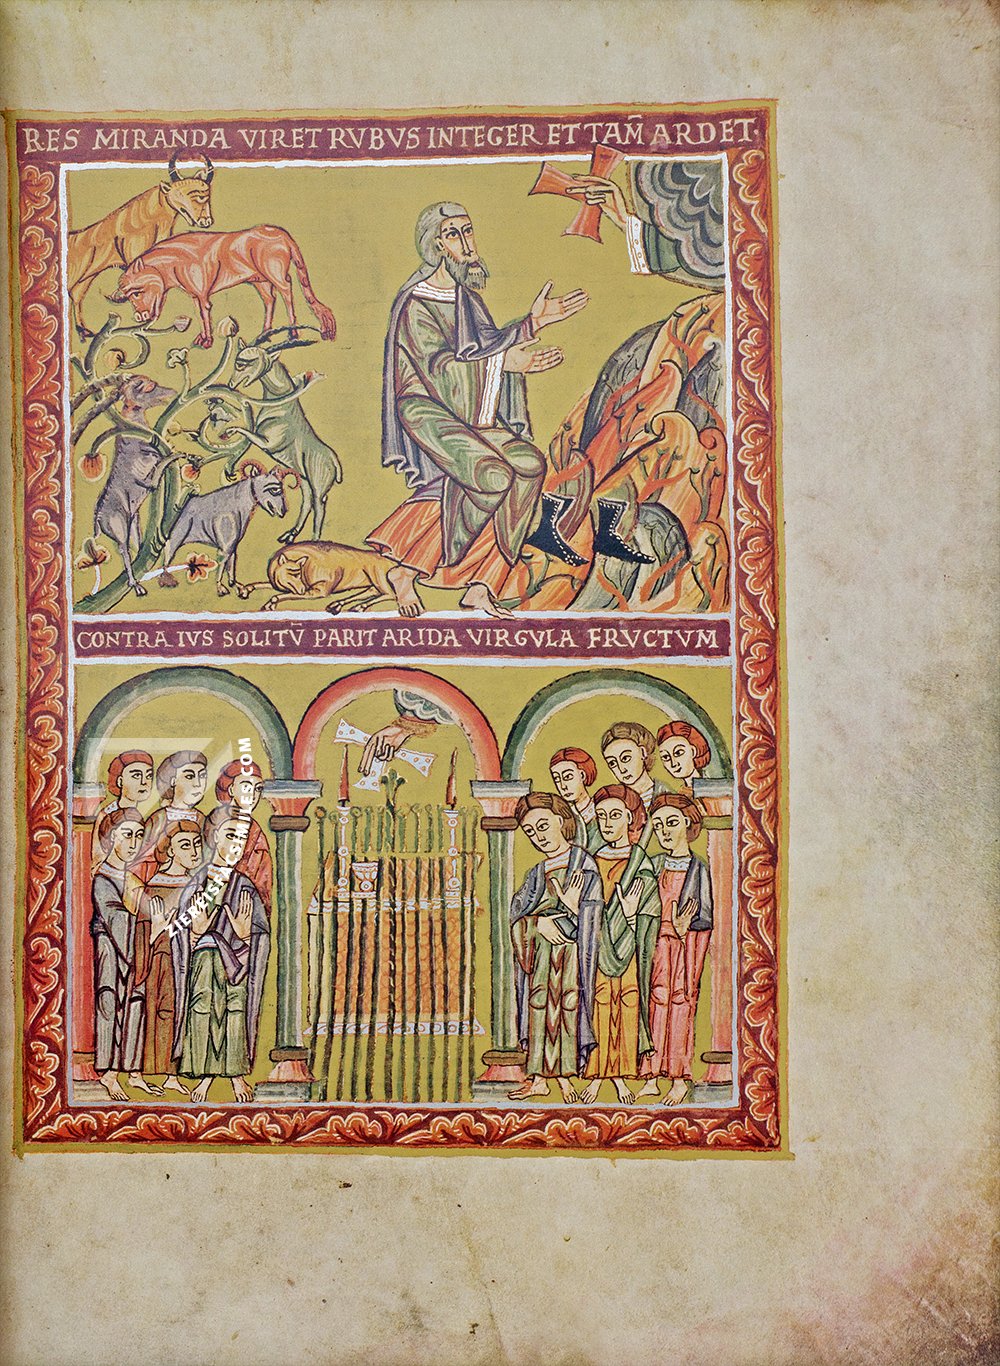 RES MIRANDA VIRET RVBVS INTEGER ET TAM̄ ARDET·
CONTRA IVS SOLITV̄ PARIT ARIDA VIRGVLA FRVCTVM
ZIEREISFACSIMILES.COM